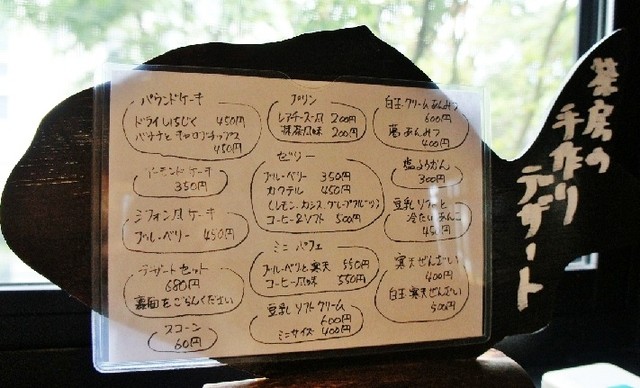 パウンドケーキ
ドライいちじく 450円
バナナとキャロブチップス
450円
アーモンドケーキ
350円
シフォン風ケーキ
ブルーベリー 450円
デザートセット
680円
裏面をごらんください
スコーン
60円
プリン
レアチーズ風 200円
抹茶風味 200円
ゼリー
ブルーベリー 350円
カクテル 450円
(レモン、カシス、グレープフルーツ)
コーヒー&ソフト 500円
ミニ パフェ
ブルーベリーと寒天 550円
コーヒー風味 550円
豆乳 ソフトクリーム
600円
ミニサイズ 400円
白玉クリームあんみつ
600円
葛あんみつ
400円
塩ようかん
300円
豆乳ソフトと
冷たいあんこ
450円
寒天ぜんざい
400円
白玉寒天ぜんざい
500円
茶房の
手作り
デザート